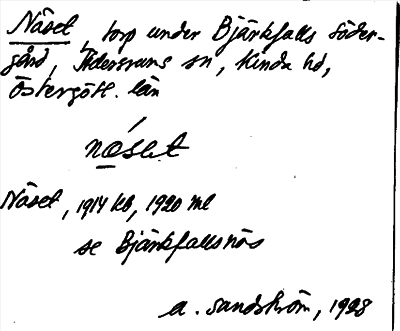 Näset, torp under Bjärkfalls Söder-
gård, Tidersrums sn, Kinda hd,
Östergötl. län
næ´set
Näset, 1914 kb, 1920 ml
se Bjärkfallsnäs
A. Sandström, 1928